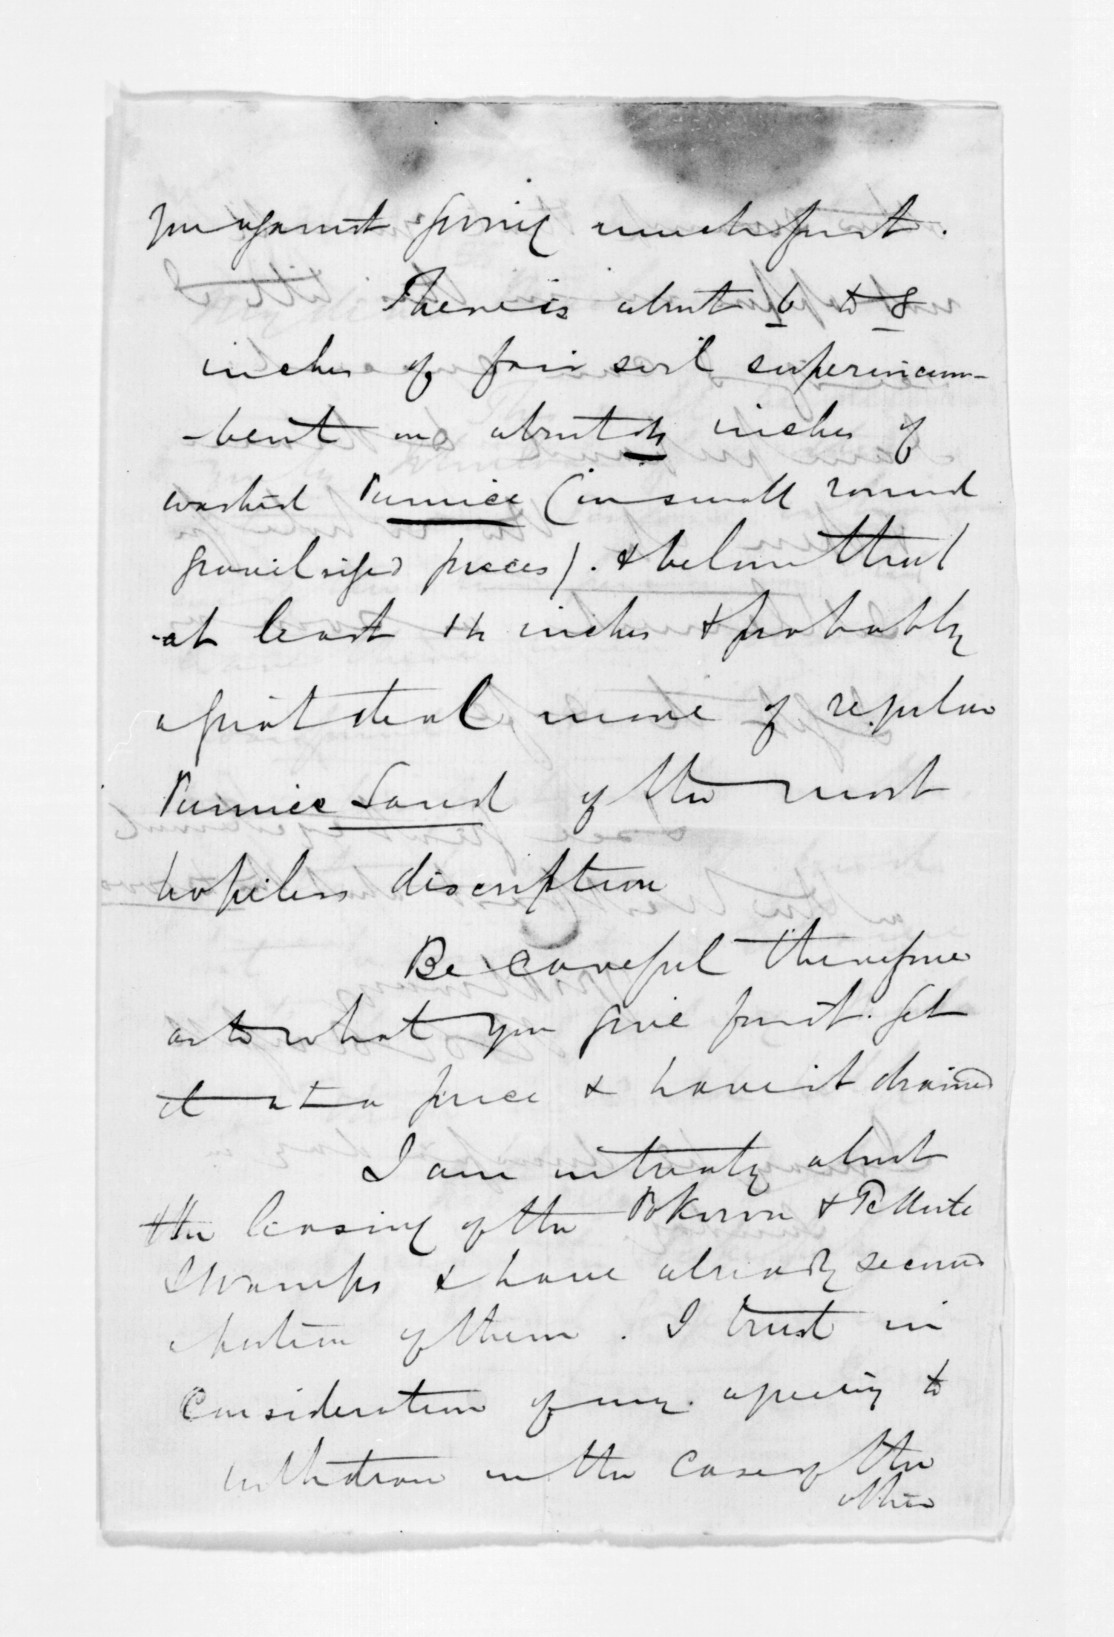 you against giving much for it.
There is about 6 to 8
inches of fair soil superincum-
-bent on about inches of
washed Pumice (in small round
gravel sized pieces). & below that
at least 14 inches & probably
a great deal more of regular
Pumice Sand of the most
hopeless discription
Be careful therefore
as to what you give for it. Get
it at a price & have it drained
I am in treaty about
the leasing of the &
Swamps & have already secured
a portion of them. I trust in
consideration of my agreeing to
withdraw in the case of the
other